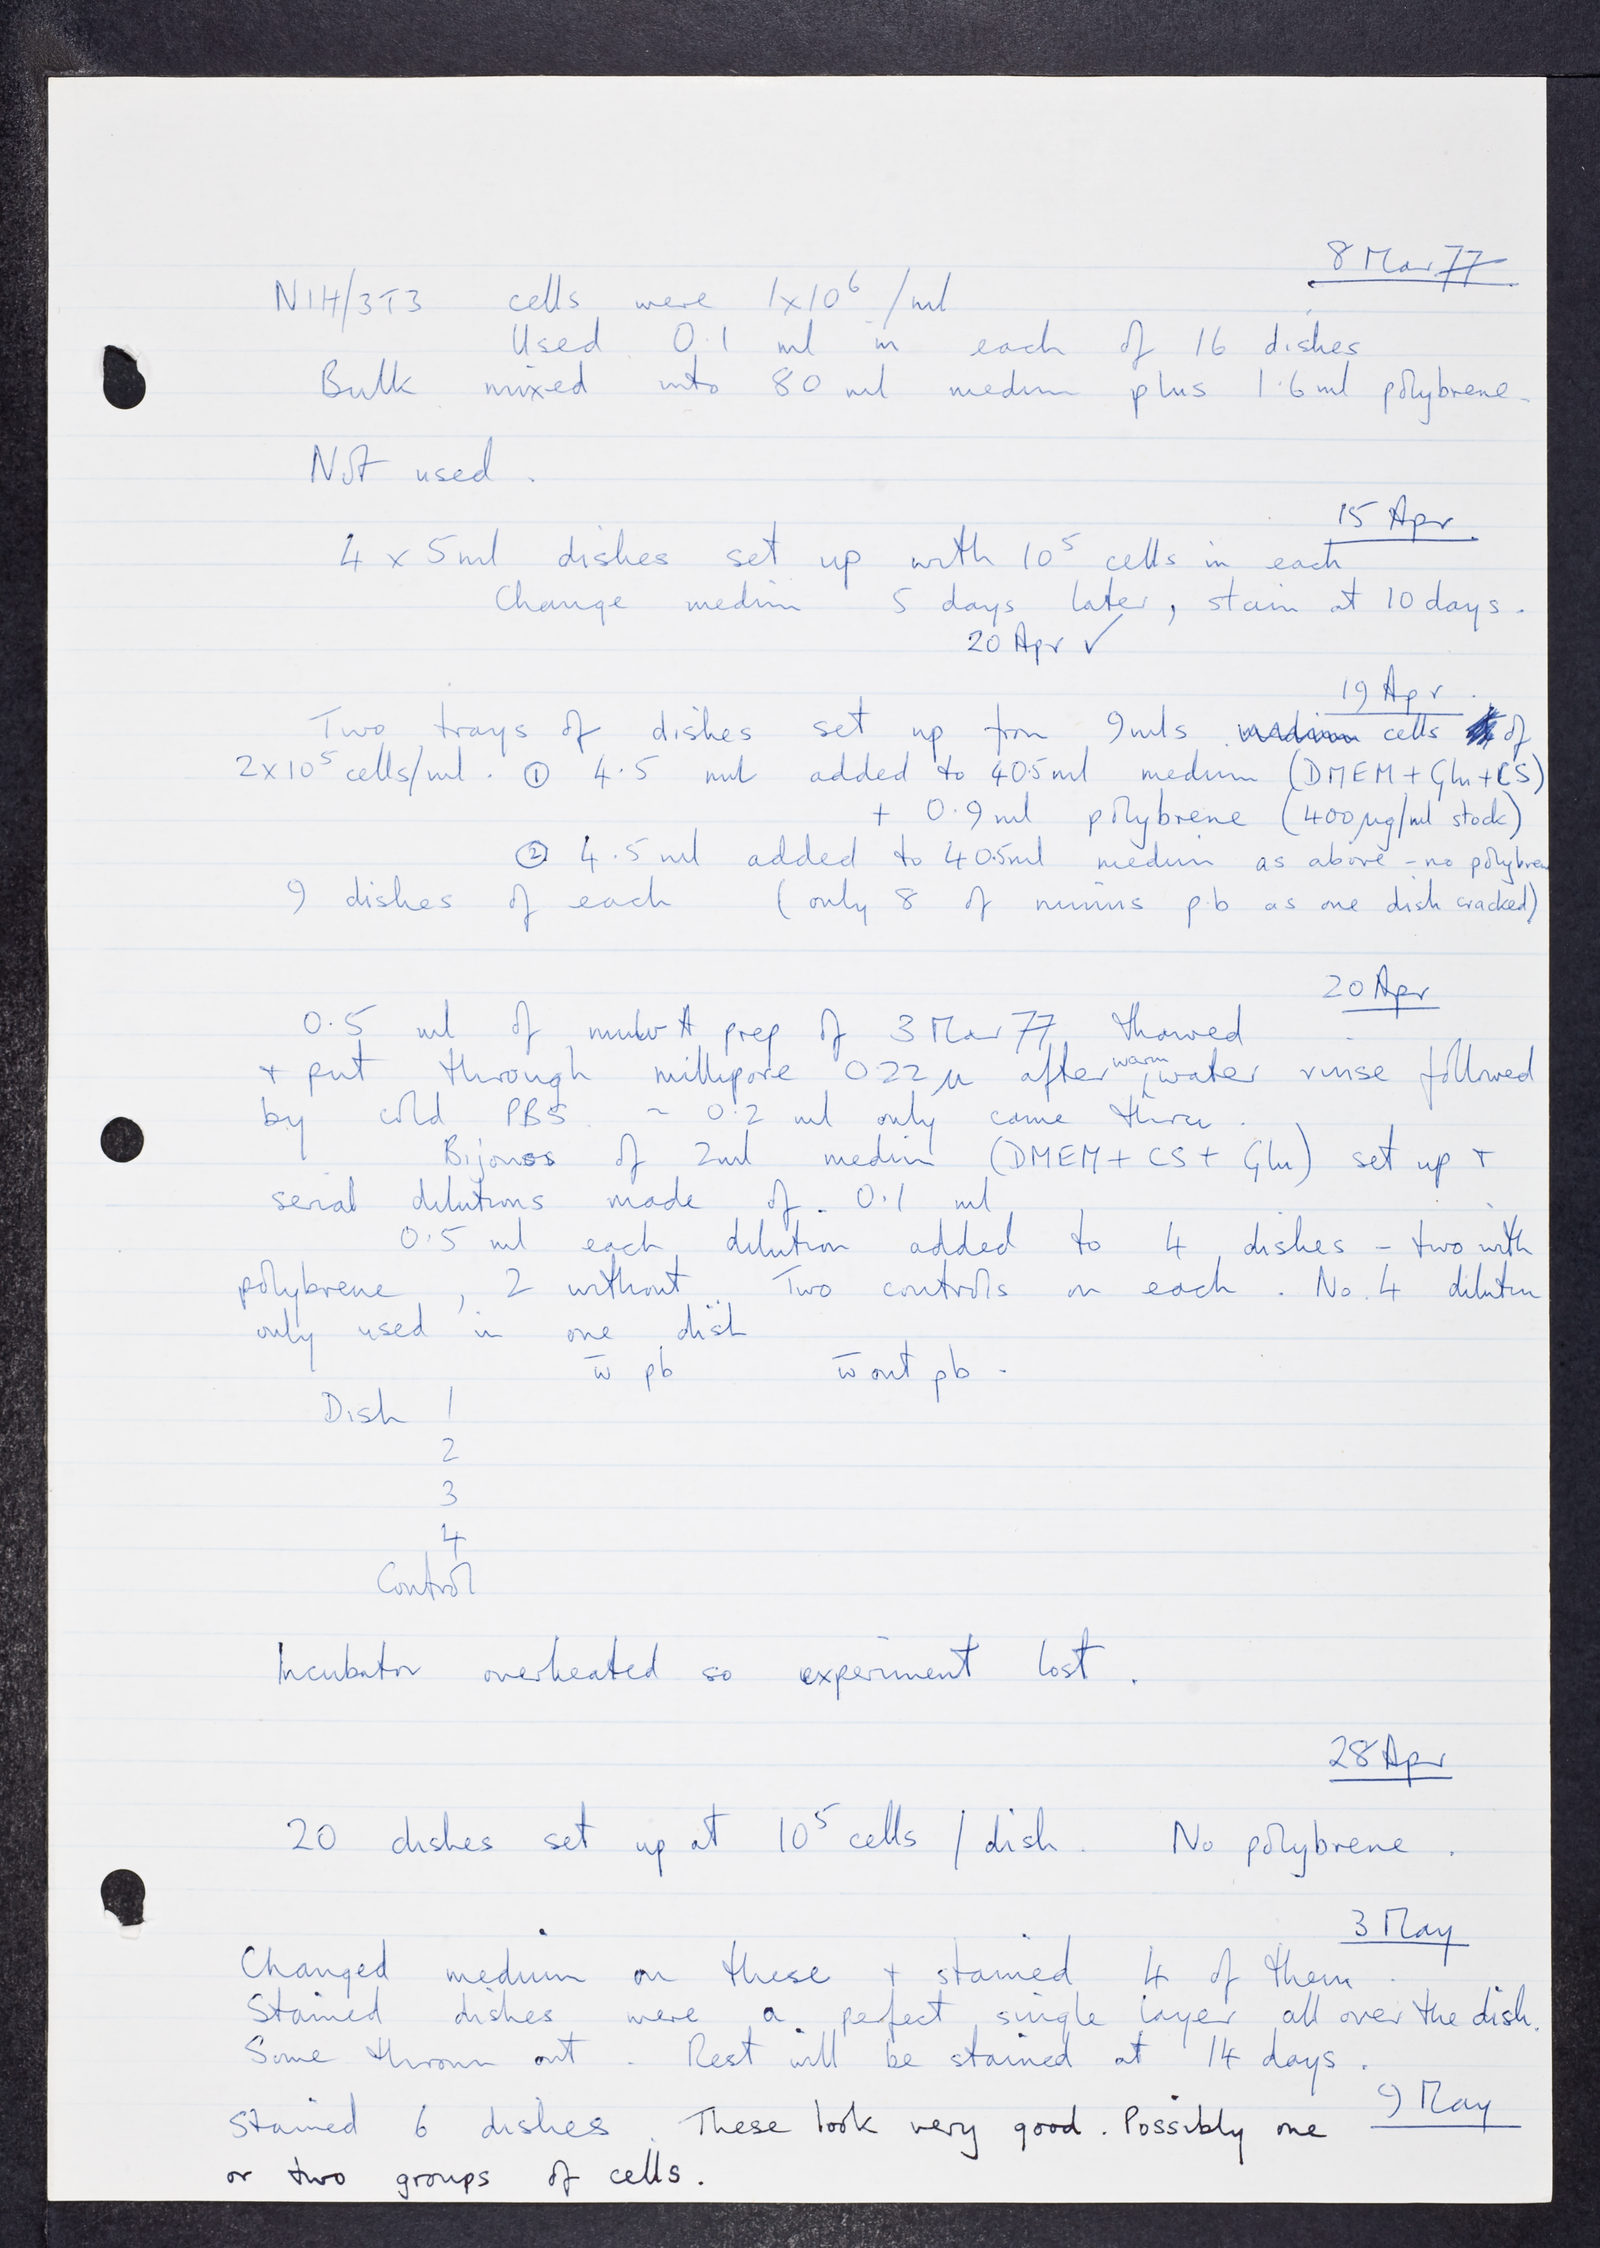 8 Mar 77
NIH/3T3 cells were 1x10⁶/ml
Used 0.1 ml in each of 16 dishes
Bulk mixed into 80 ml medium plus 1.6 ml polybrene.
Not used.
15 Apr
4 x 5ml dishes set up with 10⁵ cells in each
Change medium 5 days later, stain at 10 days.
20 Apr ✓
19 Apr
Two trays of dishes set up from 9mls medium cells of
2x10⁵ cells/ml. ① 4.5 ml added to 40.5 ml medium (DMEM + Glu + CS)
+ 0.9 ml polybrene (400 µg/ml stock)
② 4.5 ml added to 40.5ml medium as above - no polybrene
9 dishes of each (only 8 of minus pb as one dish cracked)
20 Apr
0.5 ml of prep of 3 Mar 77 thawed
+ put through millipore 0.22 µ after warm water rinse followed
by cold PBS ~ 0.2 ml only came thru.
Bijous of 2ml medium (DMEM + CS + Glu) set up +
serial dilutions made of 0.1 ml
0.5 ml each dilution added to 4 dishes - two with
polybrene, 2 without. Two controls on each. No. 4 dilution
only used in one dish
w̄ pb w̄out pb.
Dish 1
2
3
4
Control
Incubator overheated so experiment lost.
28 Apr
20 dishes set up at 10⁵ cells / dish. No polybrene.
3 May
Changed medium on these + stained 4 of them.
Stained dishes were a perfect single layer all over the dish.
Some thrown out. Rest will be stained at 14 days.
9 May
Stained 6 dishes. These look very good. Possibly one
or two groups of cells.